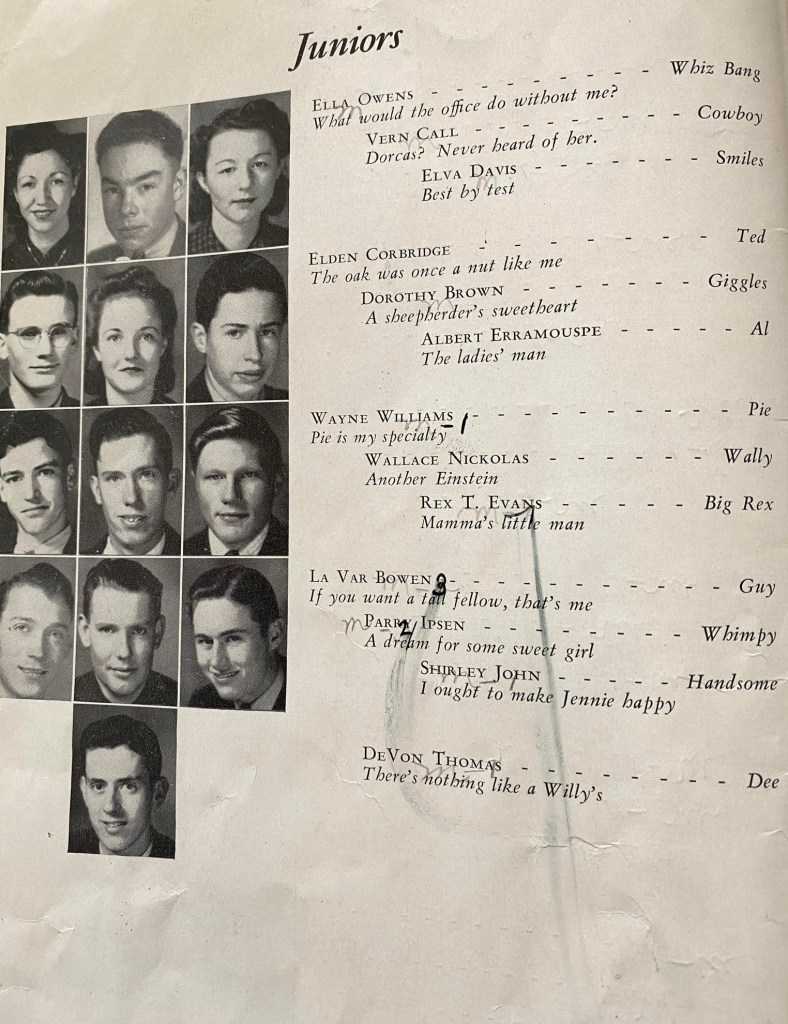 Juniors
Ella Owens - - - - - - - - Whiz Bang
What would the office do without me?
Vern Call - - - - - - - - Cowboy
Dorcas? Never heard of her.
Elva Davis - - - - - - - Smiles
Best by test
Elden Corbridge - - - - - - - - Ted
The oak was once a nut like me
Dorothy Brown - - - - - - - Giggles
A sheepherder's sweetheart
Albert Erramouspe - - - - - Al
The ladies' man
Wayne Williams - 1 - - - - - - - - - - Pie
Pie is my specialty
Wallace Nickolas - - - - - - Wally
Another Einstein
Rex T. Evans - - - - - Big Rex
Mamma's little man
La Var Bowen 3 - - - - - - - - - Guy
If you want a tall fellow, that's me
m Parry 2 Ipsen - - - - - - - - Whimpy
A dream for some sweet girl
Shirley John - - - - - Handsome
I ought to make Jennie happy
DeVon Thomas - - - - - - - - Dee
There's nothing like a Willy's